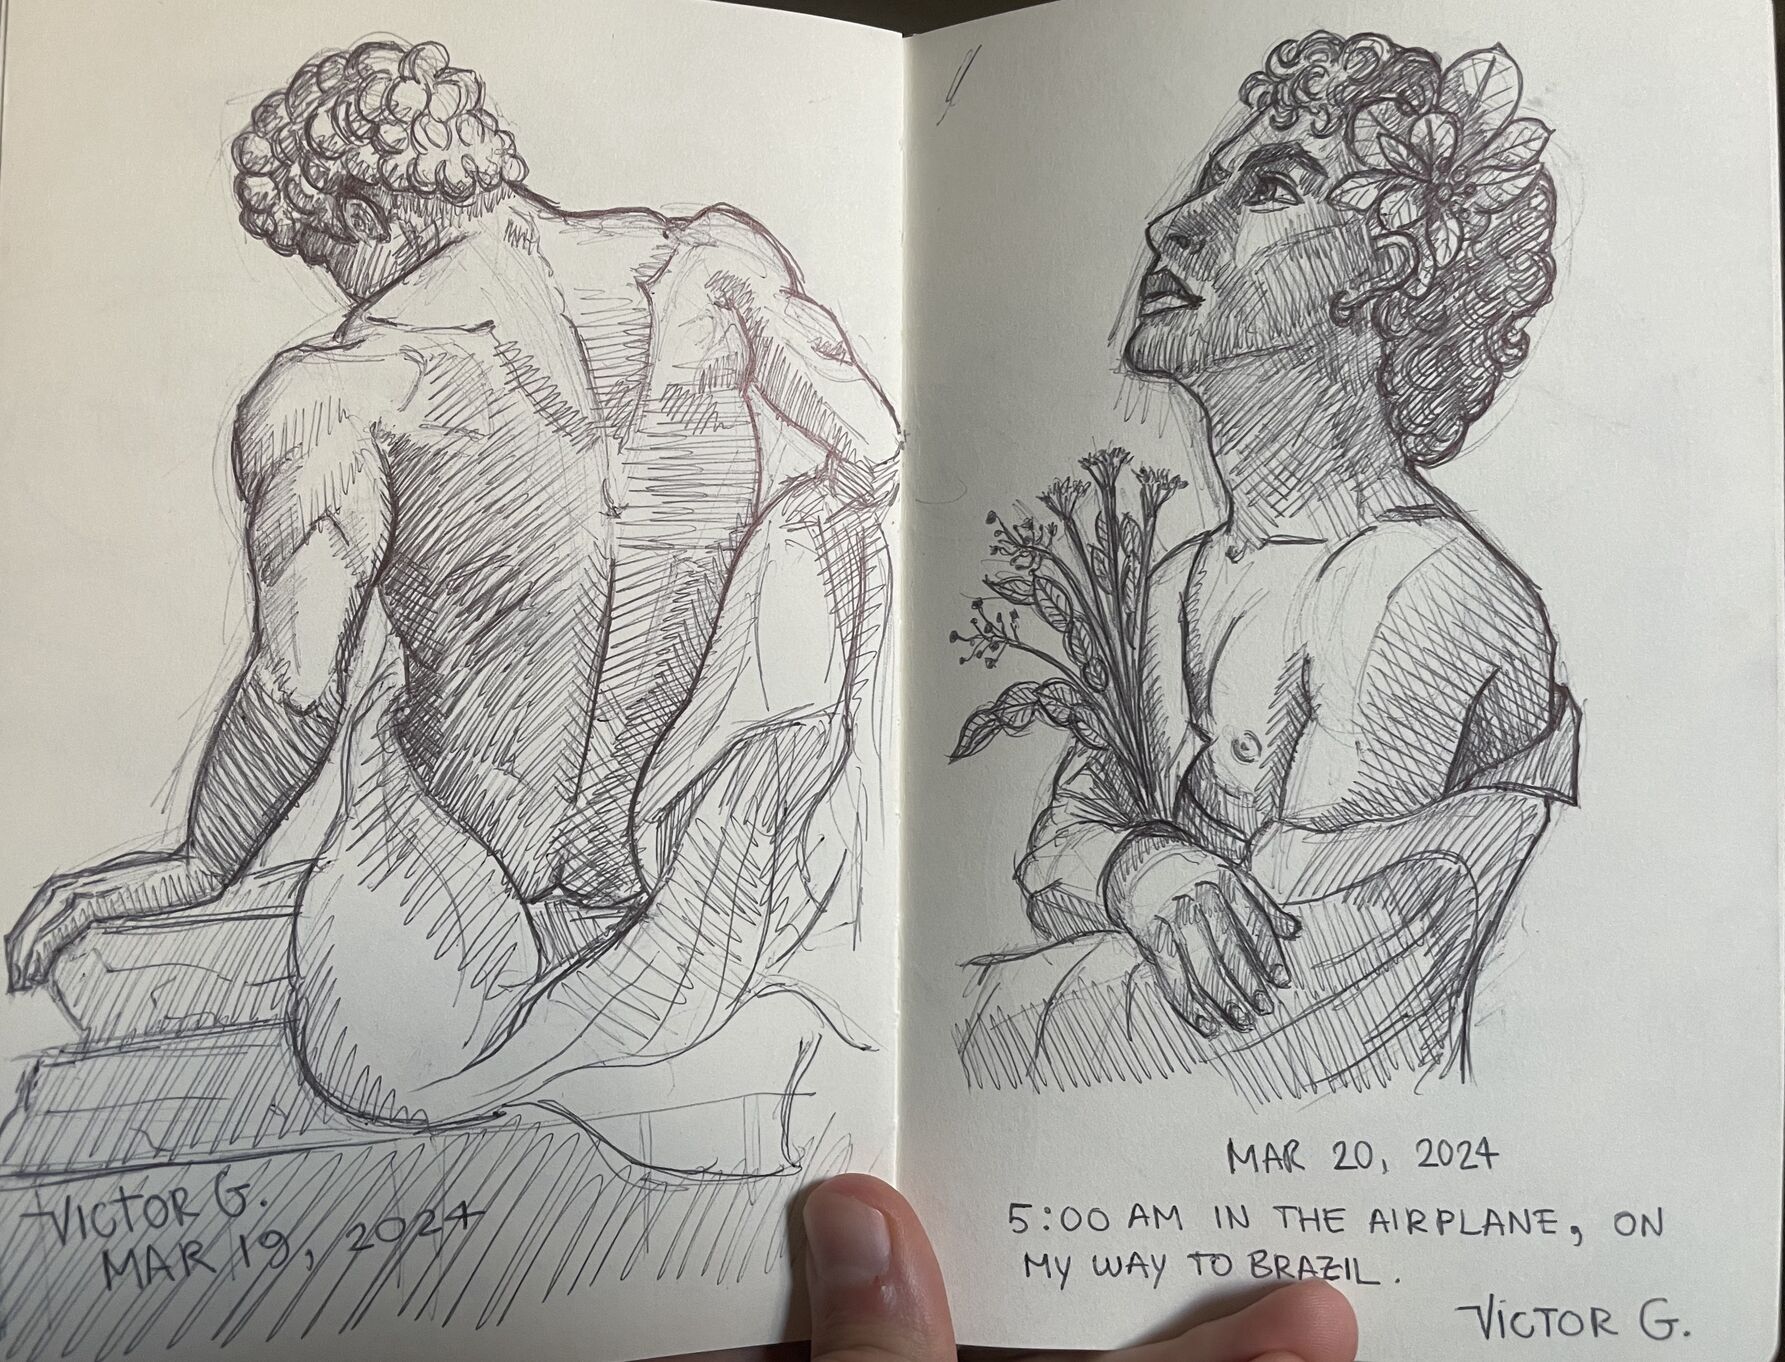 VICTOR G.
MAR 19, 2024
MAR 20, 2024
5:00 AM IN THE AIRPLANE, ON
MY WAY TO BRAZIL.
VICTOR G.